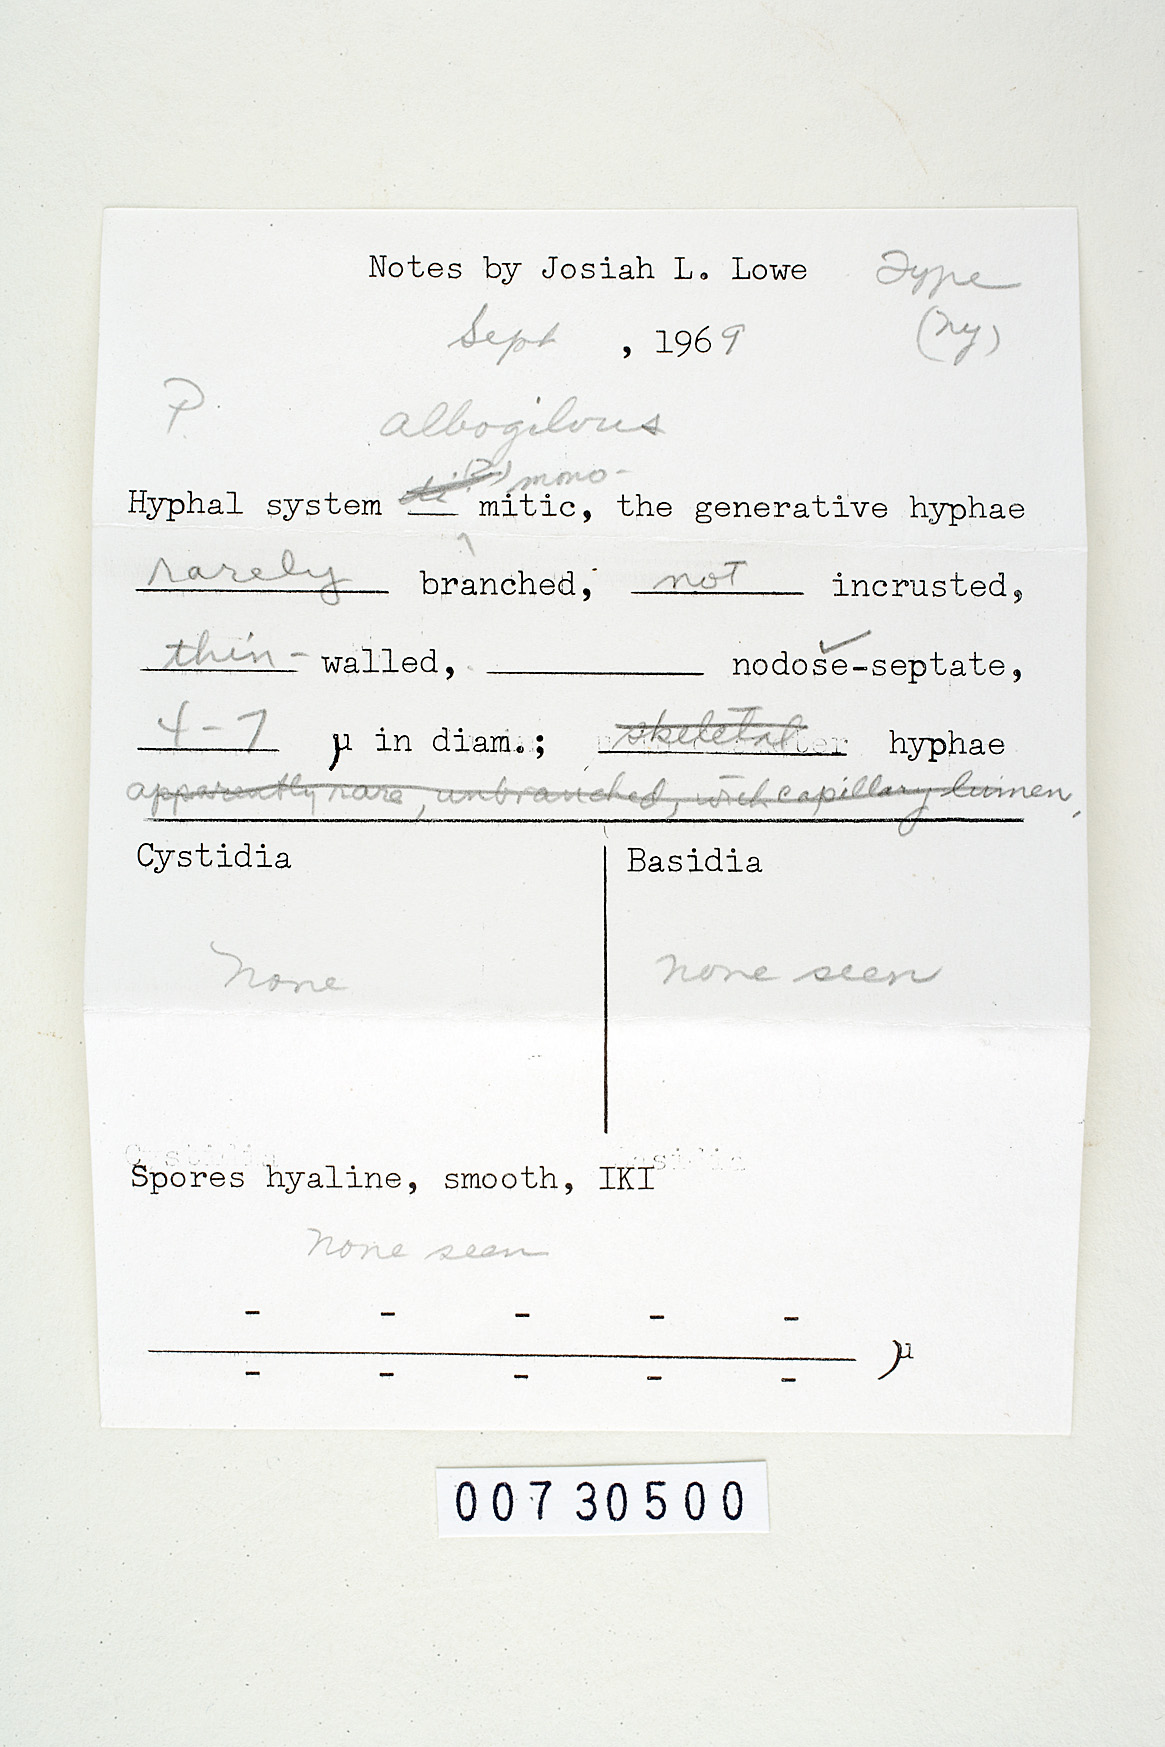 Notes by Josiah L. Lowe Type
Sept , 1969 (NY)
P. albogilvus
di(?) mono-
Hyphal system mitic, the generative hyphae
rarely branched, not incrusted,
thin- walled, nodose-septate, ✓
4-7 µ in diam.; skeletal hyphae
apparently rare, unbranched, with capillary lumen,
Cystidia Basidia
None none seen
Spores hyaline, smooth, IKI
None seen
- - - - -
µ
- - - - -
00730500